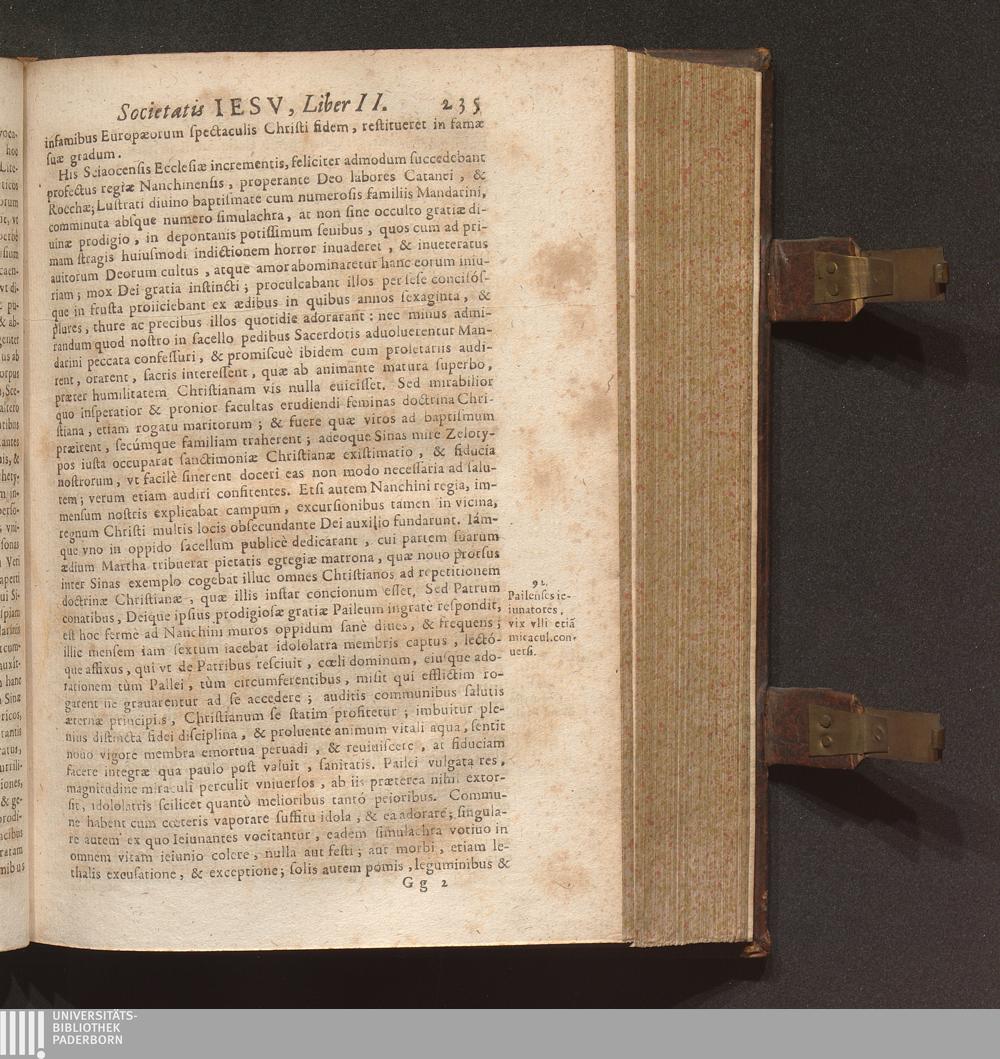 Societatis IESV, Liber II. 235
infamibus Europæorum spectaculis Christi fidem, restitueret in famæ
suæ gradum.
His Sciaocensis Ecclesiæ incrementis, feliciter admodum succedebant
profectus regiæ Nanchinensis, properante Deo labores Catanei, &
Rocchæ; Lustrati diuino baptismate cum numerosis familiis Mandarini,
comminuta absque numero simulachra, at non sine occulto gratiæ di-
uinæ prodigio, in depontanis potissimum senibus, quos cum ad pri-
mam stragis huiusmodi indictionem horror inuaderet, & inueteratus
auitorum Deorum cultus, atque amor abominaretur hanc eorum iniu-
riam; mox Dei gratia instincti; proculcabant illos per sese concisós-
que in frusta proiiciebant ex ædibus in quibus annos sexaginta, &
plures, thure ac precibus illos quotidie adorarant: nec minus admi-
randum quod nostro in sacello pedibus Sacerdotis aduoluerentur Man-
darini peccata confessuri, & promiscuè ibidem cum proletariis audi-
rent, orarent, sacris interessent, quæ ab animante matura superbo,
præter humilitatem Christianam vis nulla euicisset. Sed mirabilior
quo insperatior & pronior facultas erudiendi feminas doctrina Chri-
stiana, etiam rogatu maritorum; & fuere quæ viros ad baptismum
præirent, secúmque familiam traherent; adeoque Sinas mire Zeloty-
pos iusta occuparat sanctimoniæ Christianæ existimatio, & fiducia
nostrorum, vt facilè sinerent doceri eas non modo necessaria ad salu-
tem; verum etiam audiri confitentes. Etsi autem Nanchini regia, im-
mensum nostris explicabat campum, excursionibus tamen in vicina,
regnum Christi multis locis obsecundante Dei auxilio fundarunt. Iám-
que vno in oppido sacellum publicè dedicarant, cui partem suarum
ædium Martha tribuerat pietatis egregiæ matrona, quæ nouo prorsus
inter Sinas exemplo cogebat illuc omnes Christianos ad repetitionem
doctrinæ Christianæ, quæ illis instar concionum esset. Sed Patrum
conatibus, Deique ipsius prodigiosæ gratiæ Paileum ingratè respondit,
est hoc fermè ad Nanchini muros oppidum sanè diues, & frequens;
illic mensem iam sextum iacebat idololatra membris captus, lectó-
que affixus, qui vt de Patribus resciuit, cœli dominum, eiusque ado-
rationem tùm Pailei, tùm circumferentibus, misit qui efflictim ro-
garent ne grauarentur ad se accedere; auditis communibus salutis
æternæ principiis, Christianum se statim profitetur; imbuitur ple-
nius distincta fidei disciplina, & proluente animum vitali aqua, sentit
nouo vigore membra emortua peruadi, & reuiuiscere, at fiduciam
facere integræ qua paulo post valuit, sanitatis. Pailei vulgata res,
magnitudine miraculi perculit vniuersos, ab iis præterea nihil extor-
sit, idololatris scilicet quantò melioribus tantó peioribus. Commu-
ne habent cum cæteris vaporare suffitu idola, & ea adorare; singula-
re autem ex quo Ieiunantes vocitantur, eadem simulachra votiuo in
omnem vitam ieiunio colere, nulla aut festi; aut morbi, etiam le-
thalis excusatione, & exceptione; solis autem pomis, leguminibus &
Gg 2
92.
Pailenses ie-
iunatores,
vix vlli etiã
miracul. con-
uersi.
UNIVERSITÄTS-
BIBLIOTHEK
PADERBORN